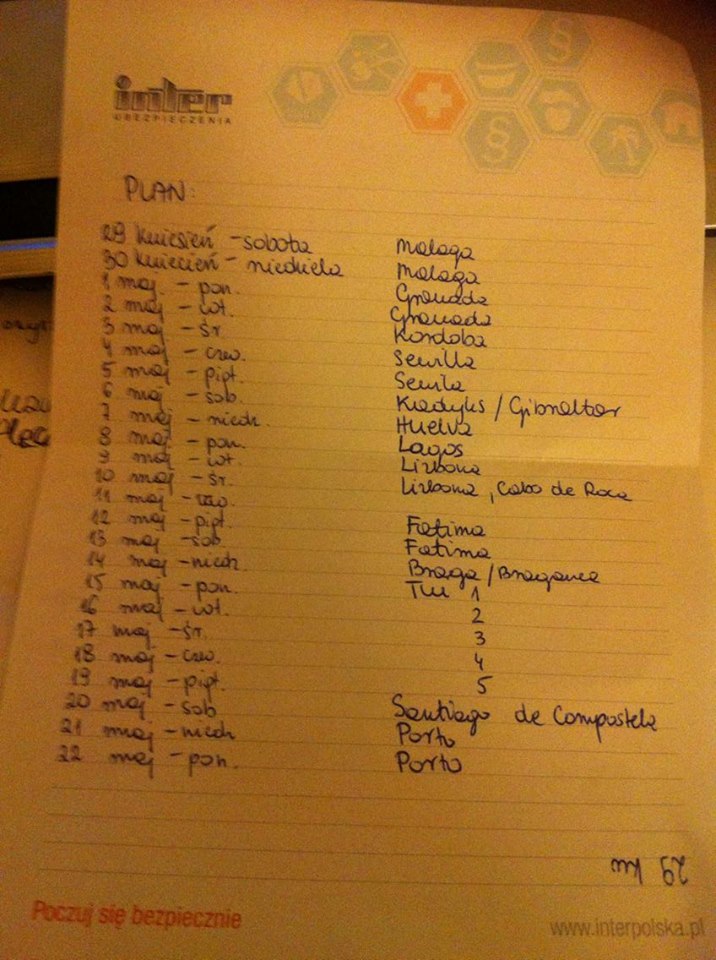 inter
UBEZPIECZENIA
PLAN:
29 kwiecień - sobota Malaga
30 kwiecień - niedziela Malaga
1 maj - pon. Granada
2 maj - wt. Granada
3 maj - śr. Kordoba
4 maj - czw. Sewilla
5 maj - piąt. Sewila
6 maj - sob. Kadyks / Gibraltar
7 maj - niedz. Huelva
8 maj - pon. Lagos
9 maj - wt. Lizbona
10 maj - śr. Lizbona, Cabo de Roca
11 maj - czw.
12 maj - piąt. Fatima
13 maj - sob. Fatima
14 maj - niedz. Braga / Braganca
15 maj - pon. Tui 1
16 maj - wt. 2
17 maj - śr. 3
18 maj - czw. 4
19 maj - piąt. 5
20 maj - sob Santiago de Compostela
21 maj - niedz Porto
22 maj - pon. Porto
29 kw
Poczuj się bezpiecznie
www.interpolska.pl